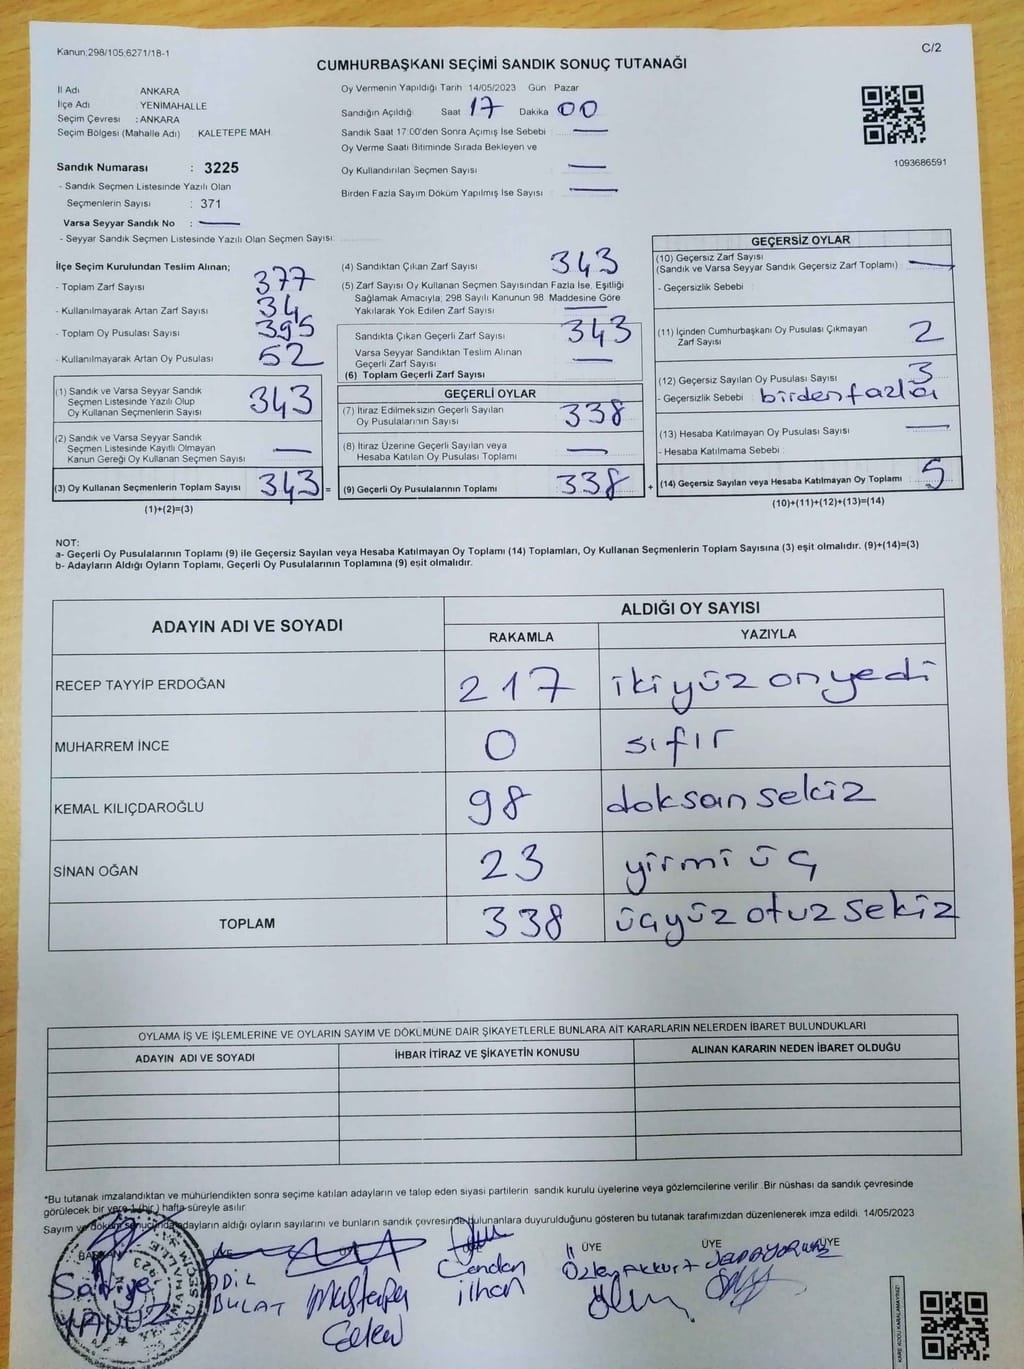 Kanun;298/105;6271/18-1
C/2
CUMHURBAŞKANI SEÇİMİ SANDIK SONUÇ TUTANAĞI
İl Adı ANKARA
İlçe Adı : YENİMAHALLE
Seçim Çevresi : ANKARA
Seçim Bölgesi (Mahalle Adı) : KALETEPE MAH.
Sandık Numarası : 3225
- Sandık Seçmen Listesinde Yazılı Olan
Seçmenlerin Sayısı : 371
Varsa Seyyar Sandık No :
- Seyyar Sandık Seçmen Listesinde Yazılı Olan Seçmen Sayısı:
Oy Vermenin Yapıldığı Tarih 14/05/2023 Gün Pazar
Sandığın Açıldığı: Saat 17 Dakika 00
Sandık Saat 17:00'den Sonra Açımış İse Sebebi
Oy Verme Saati Bitiminde Sırada Bekleyen ve
Oy Kullandırılan Seçmen Sayısı
Birden Fazla Sayım Döküm Yapılmış İse Sayısı
1093686591
İlçe Seçim Kurulundan Teslim Alınan;
- Toplam Zarf Sayısı 377
- Kullanılmayarak Artan Zarf Sayısı 34
- Toplam Oy Pusulası Sayısı 395
- Kullanılmayarak Artan Oy Pusulası 52
(1) Sandık ve Varsa Seyyar Sandık
Seçmen Listesinde Yazılı Olup
Oy Kullanan Seçmenlerin Sayısı 343
(2) Sandık ve Varsa Seyyar Sandık
Seçmen Listesinde Kayıtlı Olmayan
Kanun Gereği Oy Kullanan Seçmen Sayısı
(3) Oy Kullanan Seçmenlerin Toplam Sayısı 343 =
(1)+(2)=(3)
(4) Sandıktan Çıkan Zarf Sayısı 343
(5) Zarf Sayısı Oy Kullanan Seçmen Sayısından Fazla İse, Eşitliği
Sağlamak Amacıyla; 298 Sayılı Kanunun 98. Maddesine Göre
Yakılarak Yok Edilen Zarf Sayısı
Sandıkta Çıkan Geçerli Zarf Sayısı 343
Varsa Seyyar Sandıktan Teslim Alınan
Geçerli Zarf Sayısı
(6) Toplam Geçerli Zarf Sayısı
GEÇERLİ OYLAR
(7) İtiraz Edilmeksizin Geçerli Sayılan
Oy Pusulalarının Sayısı 338
(8) İtiraz Üzerine Geçerli Sayılan veya
Hesaba Katılan Oy Pusulası Toplamı
(9) Geçerli Oy Pusulalarının Toplamı 338 +
GEÇERSİZ OYLAR
(10) Geçersiz Zarf Sayısı
(Sandık ve Varsa Seyyar Sandık Geçersiz Zarf Toplamı)
- Geçersizlik Sebebi
(11) İçinden Cumhurbaşkanı Oy Pusulası Çıkmayan
Zarf Sayısı 2
(12) Geçersiz Sayılan Oy Pusulası Sayısı 3
- Geçersizlik Sebebi birden fazla
(13) Hesaba Katılmayan Oy Pusulası Sayısı
- Hesaba Katılmama Sebebi
(14) Geçersiz Sayılan veya Hesaba Katılmayan Oy Toplamı 5
(10)+(11)+(12)+(13)=(14)
NOT:
a- Geçerli Oy Pusulalarının Toplamı (9) ile Geçersiz Sayılan veya Hesaba Katılmayan Oy Toplamı (14) Toplamları, Oy Kullanan Seçmenlerin Toplam Sayısına (3) eşit olmalıdır. (9)+(14)=(3)
b- Adayların Aldığı Oyların Toplamı, Geçerli Oy Pusulalarının Toplamına (9) eşit olmalıdır.
ADAYIN ADI VE SOYADI
ALDIĞI OY SAYISI
RAKAMLA YAZIYLA
RECEP TAYYİP ERDOĞAN 217 ikiyüz onyedi
MUHARREM İNCE 0 sıfır
KEMAL KILIÇDAROĞLU 98 doksan sekiz
SİNAN OĞAN 23 yirmi üç
TOPLAM 338 üçyüz otuz sekiz
OYLAMA İŞ VE İŞLEMLERİNE VE OYLARIN SAYIM VE DÖKÜMÜNE DAİR ŞİKAYETLERLE BUNLARA AİT KARARLARIN NELERDEN İBARET BULUNDUKLARI
ADAYIN ADI VE SOYADI İHBAR İTİRAZ VE ŞİKAYETİN KONUSU ALINAN KARARIN NEDEN İBARET OLDUĞU
*Bu tutanak imzalandıktan ve mühürlendikten sonra seçime katılan adayların ve talep eden siyasi partilerin sandık kurulu üyelerine veya gözlemcilerine verilir .Bir nüshası da sandık çevresinde
görülecek bir yere 1 (bir ) hafta süreyle asılır.
Sayım ve döküm sonucunda adayların aldığı oyların sayılarını ve bunların sandık çevresinde bulunanlara duyurulduğunu gösteren bu tutanak tarafımızdan düzenlenerek imza edildi. 14/05/2023
BAŞKAN ÜYE ÜYE ÜYE ÜYE
Sadiye YAVUZ
ADİL BULAT
Mustafa
Candan ilhan
Özlem AKKURT